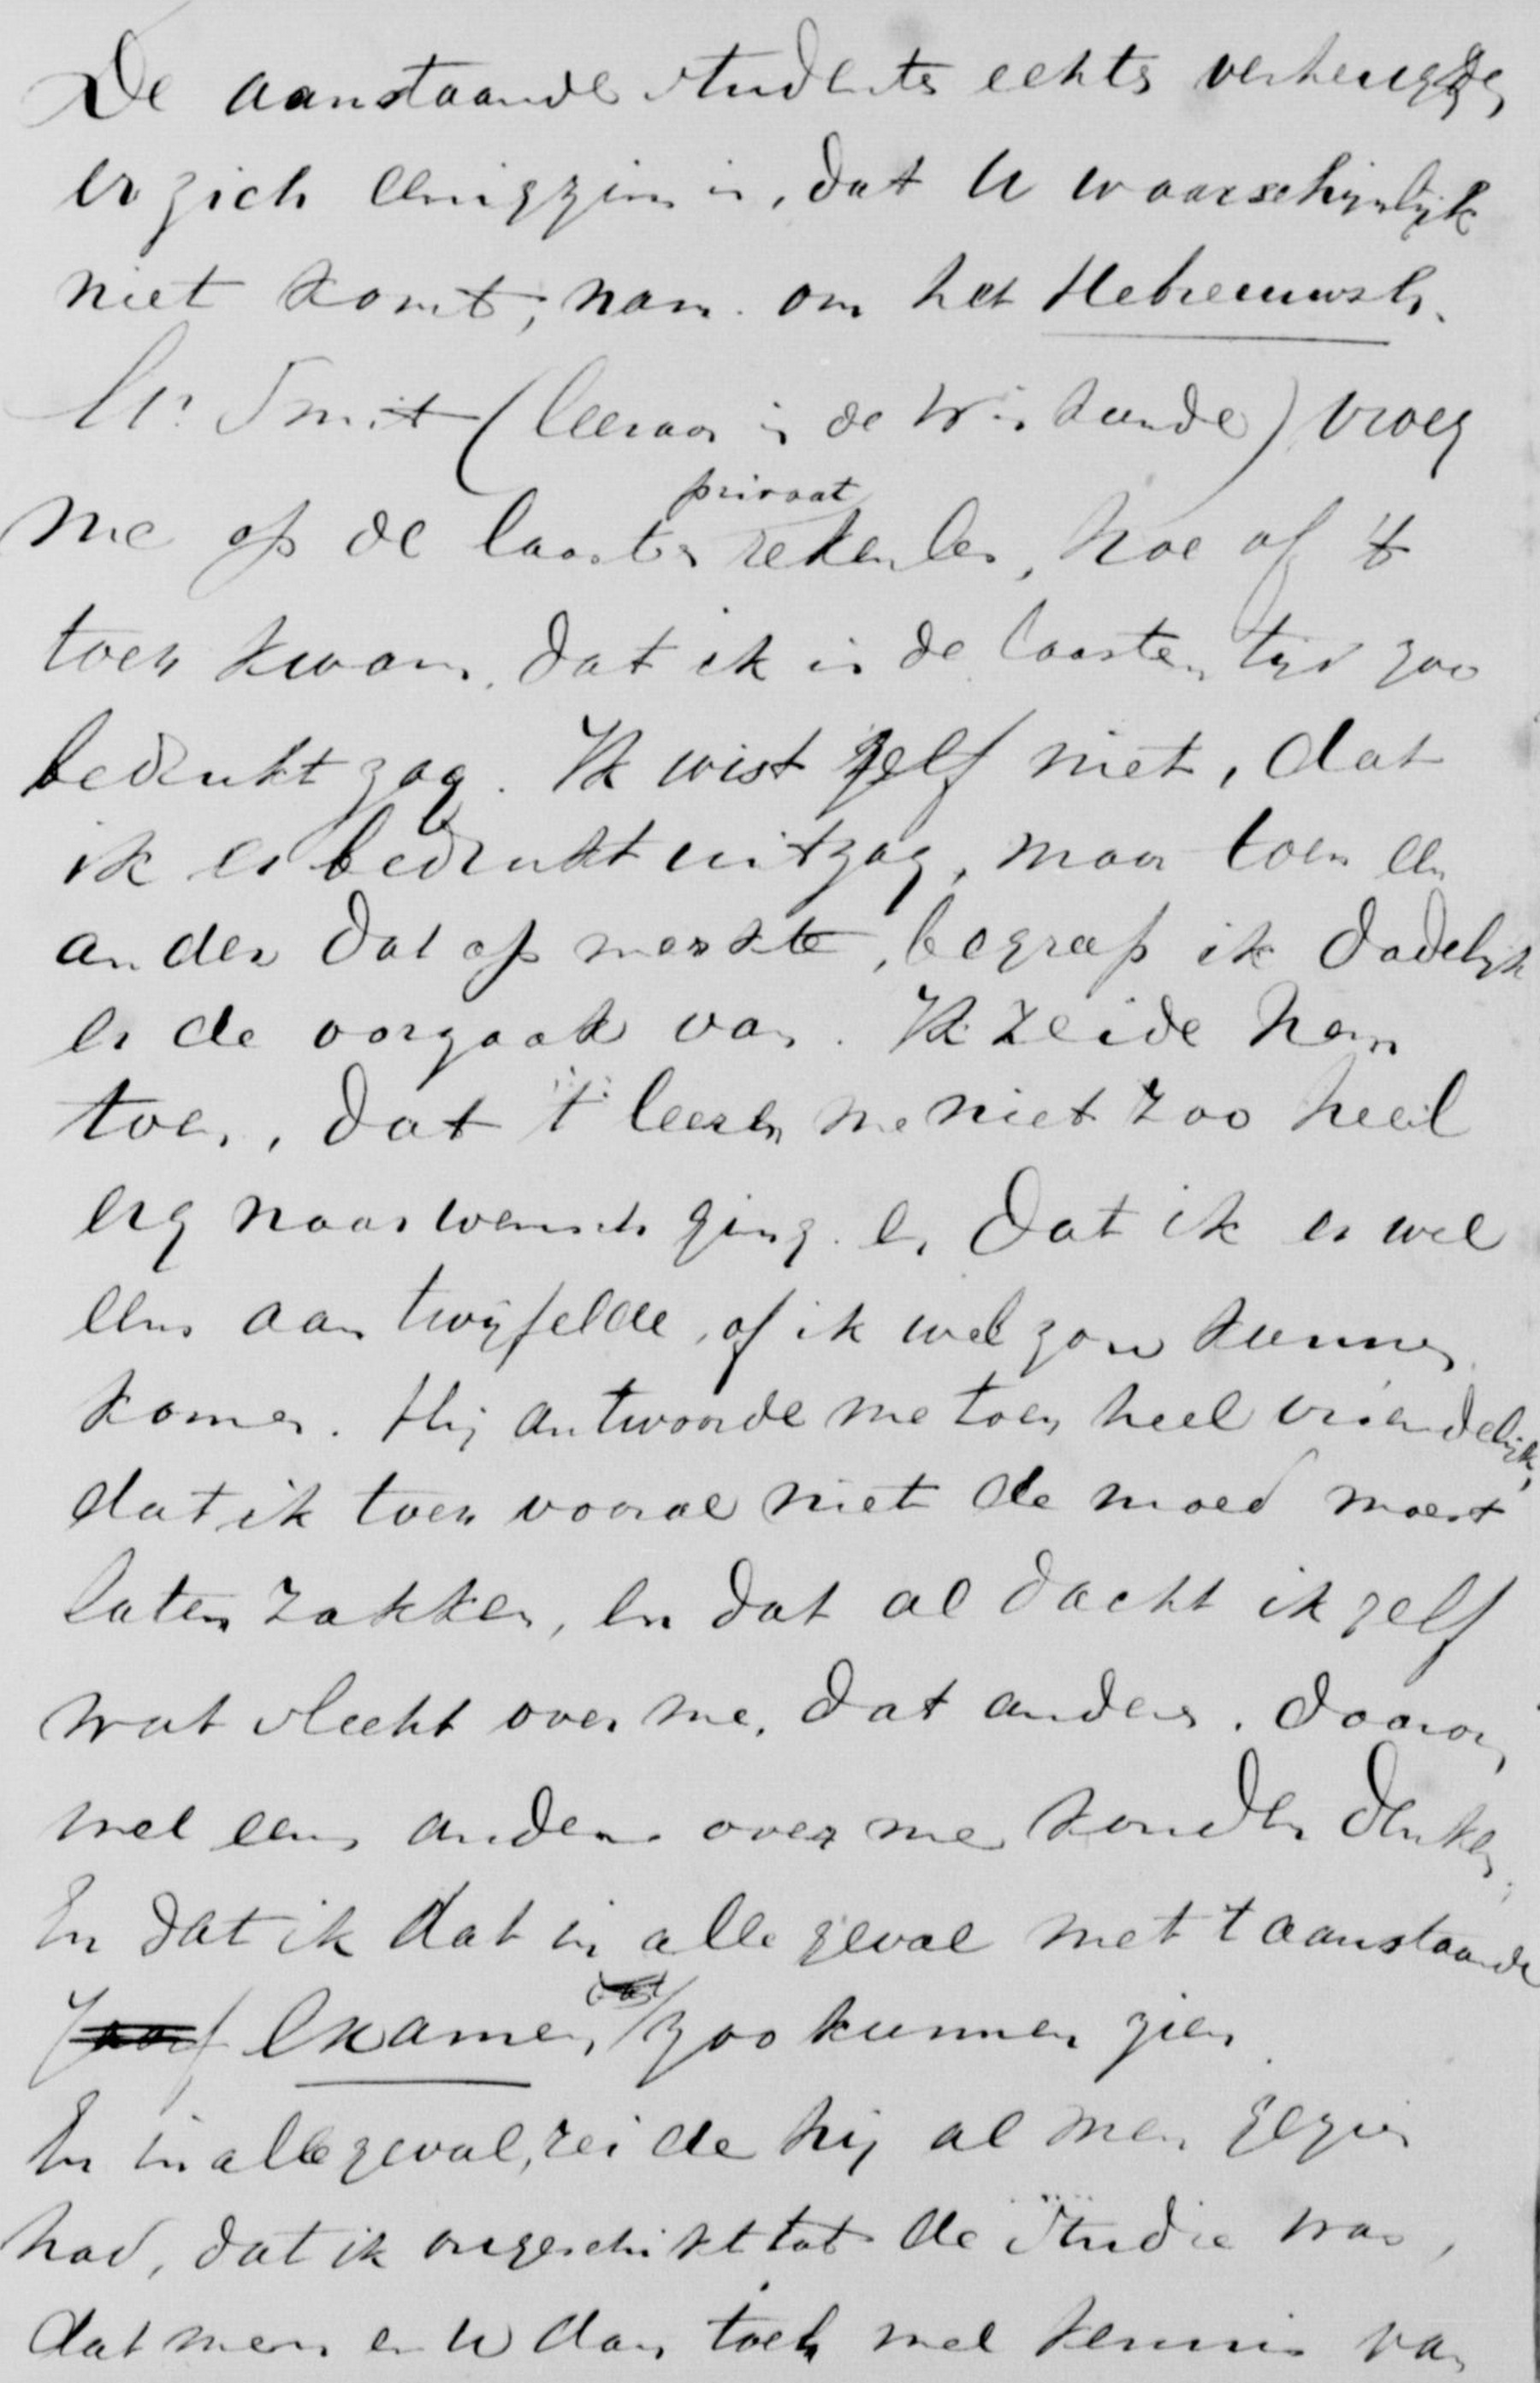 De aanstaande studente echter verheugde
er zich enigzins in, dat U waarschijnlijk
niet komt, nam. om het Hebreeuwsch.
Mr. Smit (leeraar in de Wiskunde) vroeg
me op de laaste privaat rekenles, hoe of 't
toch kwam, dat ik in de laasten tijd zoo
bedrukt zag. Ik wist zelf niet, dat
ik er bedrukt uitzag, maar toen een
ander dat op merkte, begreep ik dadelijk
er de oorzaak van. Ik zeide hem
toen, dat 't leeren me niet zoo heel
erg naar wensch ging. en dat ik er wel
eens aan twijfelde, of ik wel zou kunnen
komen. Hij antwoorde me toen heel vriendelijk,
dat ik toch vooral niet de moed moest
laten zakken, en dat al dacht ik zelf
wat slecht over me, dat anderen daarom
wel eens anders over me konden denken,
En dat ik dat in alle geval met 't aanstaande
examen, zoo kunnen zien.
En in alle geval, zei de hij al men gezien
had, dat ik ongeschikt tot de studie was,
dat men er U dan toch wel kennis van